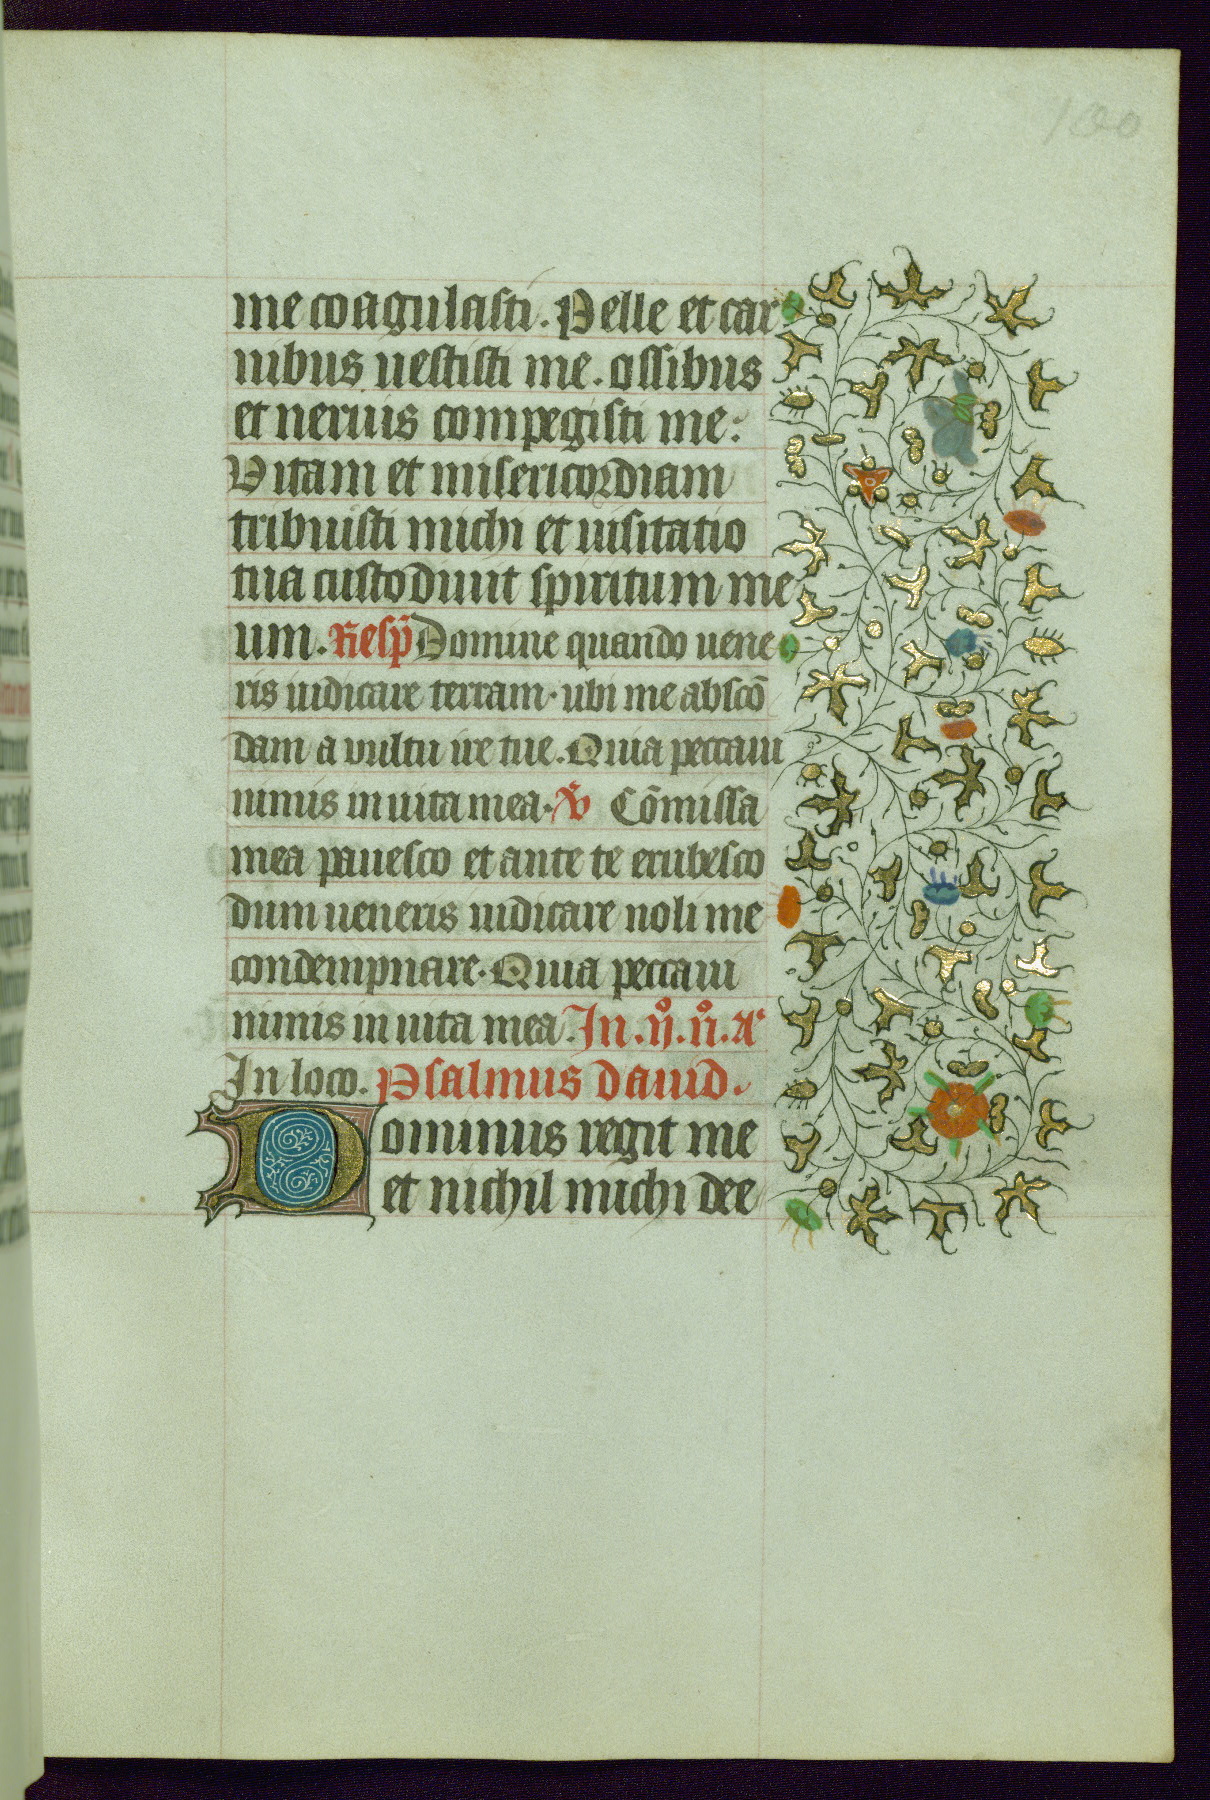 100
me coagulasti. Pelle et car
nibus uestisti me. ossibus
et neruis compegisti me.
Vitam et misericordiam
tribuisti michi et uisitatio
tua custodiuit spiritum me
um. Resp̄ Domine quando uene
ris iudicare terram. ubi me abscō
dam a vultu ire tue. Quia peccaui
nimis in uita mea. V̄ Cōmissa
mea pauesco et ante te erubesco
dum ueneris iudicare noli me
condempnare. Quia peccaui
nimis in uita mea. In .ijº. nº. Aª
In loco. Psalmus dauid.
Dominus regit me
et nichil michi dee